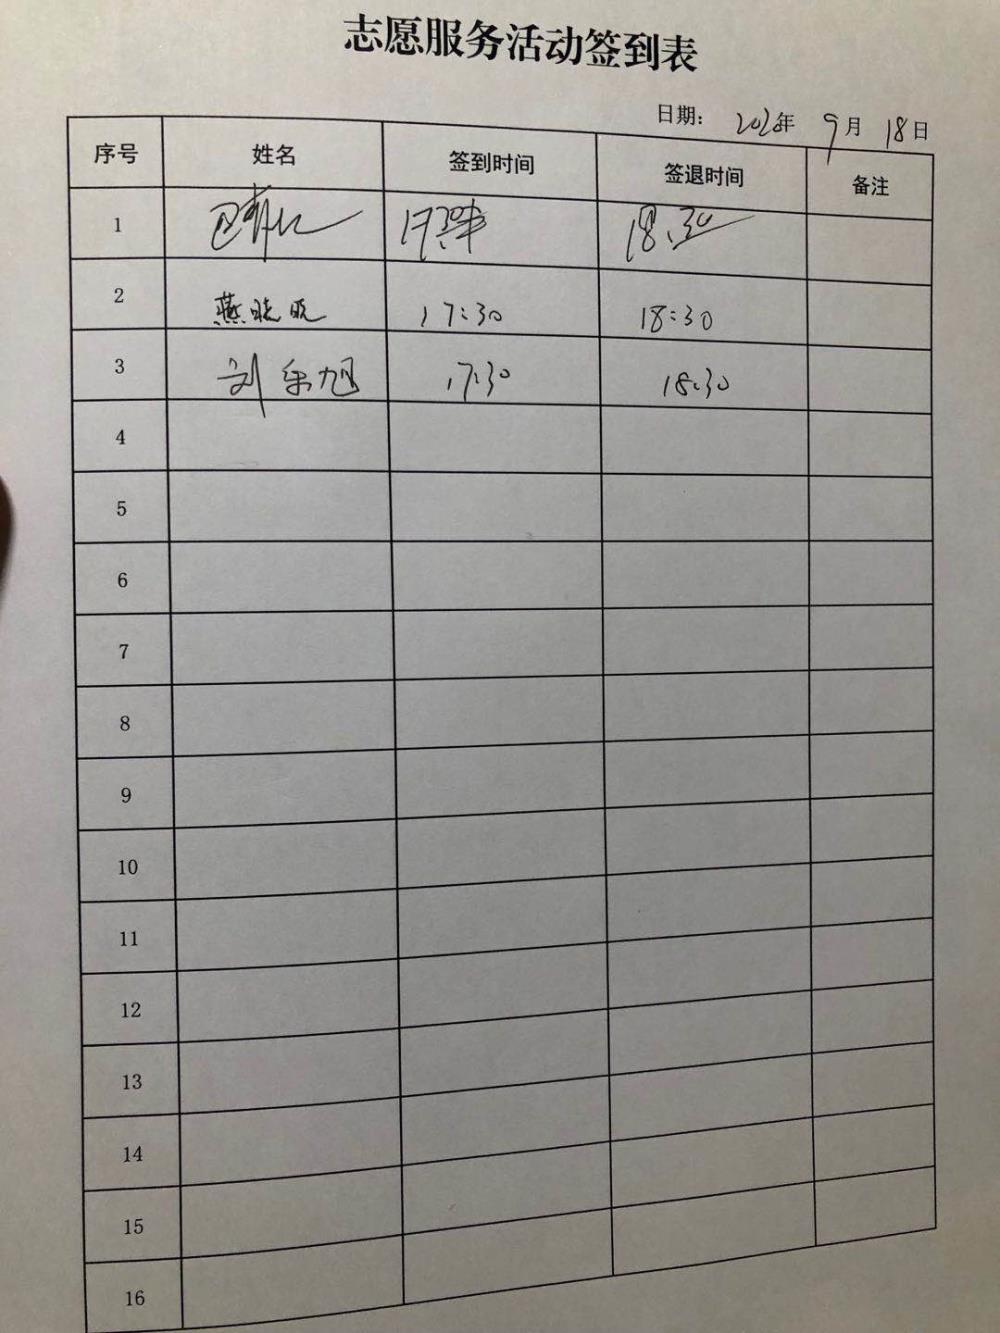 志愿服务活动签到表
日期： 2020年 9月 18日
序号 姓名 签到时间 签退时间 备注
1 18:30
2 燕晓晓 17:30 18:30
3 刘乐旭 17:30 18:30
4
5
6
7
8
9
10
11
12
13
14
15
16